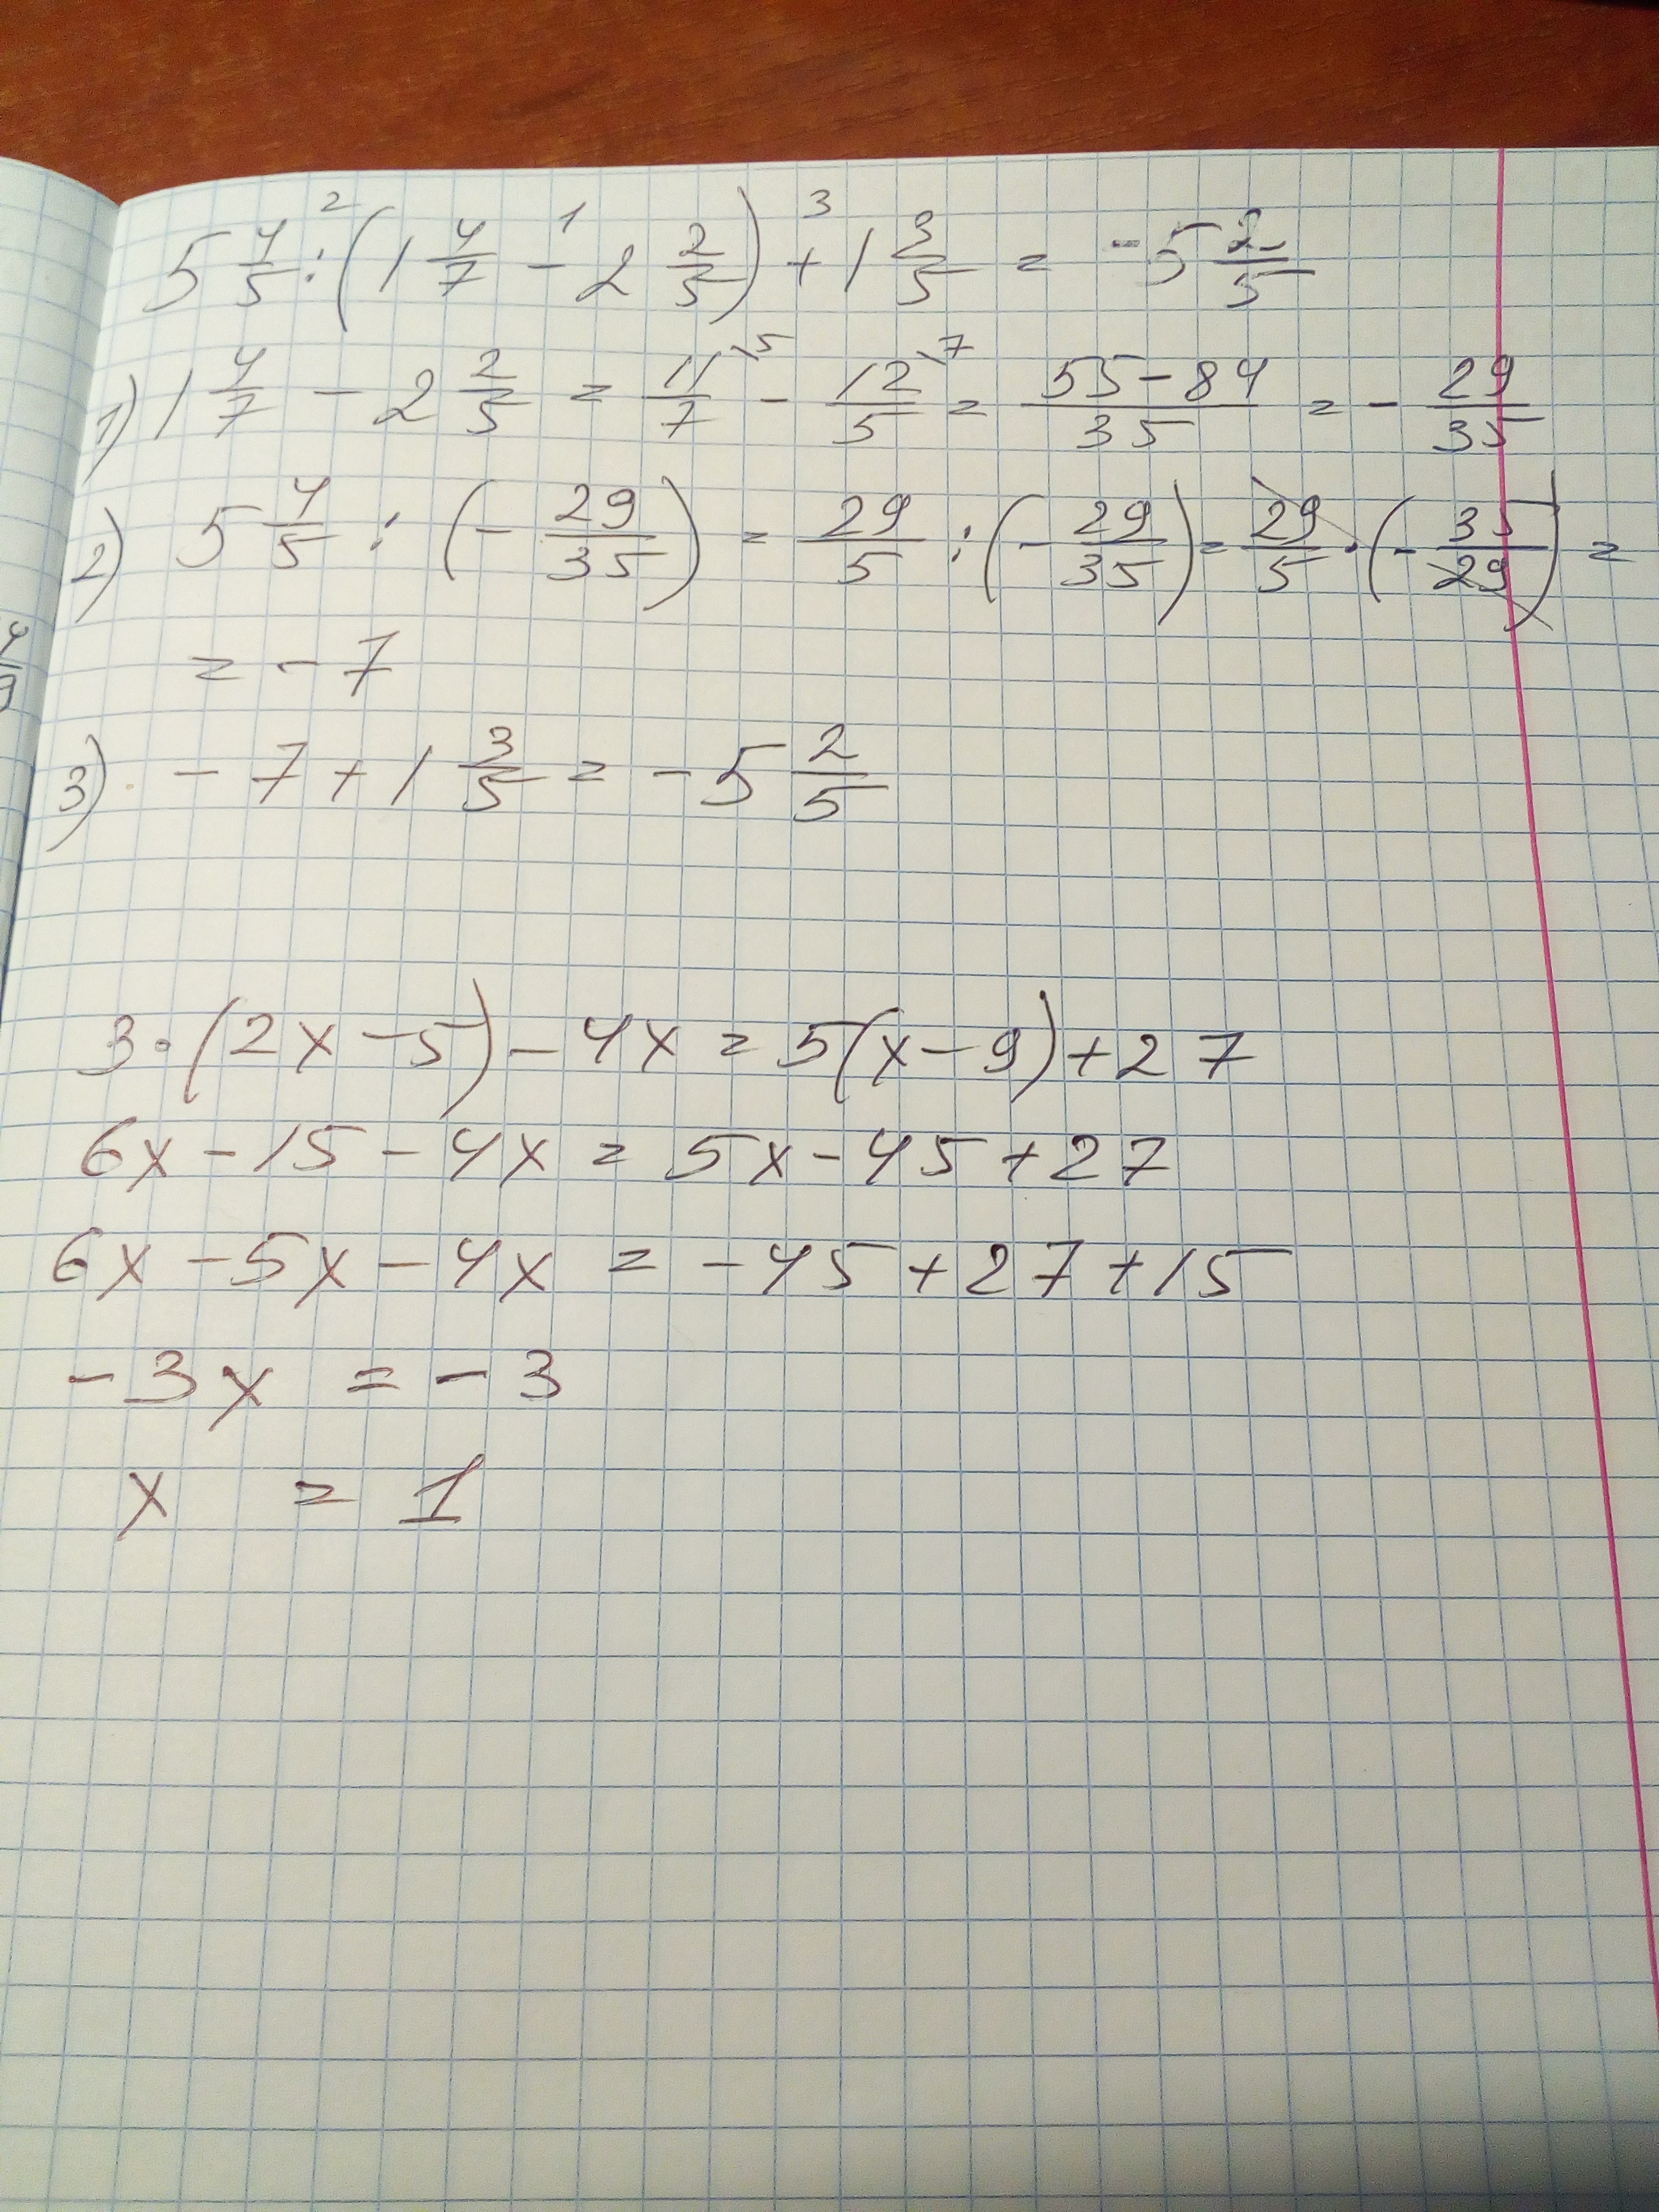 5 4/5 : (1 4/7 - 2 2/5) + 1 3/5 = -5 2/5
2 1 3
1) 1 4/7 - 2 2/5 = 11/7 \5 - 12/5 \7 = (55-84)/35 = - 29/35
2) 5 4/5 : (- 29/35) = 29/5 : (- 29/35) = 29/5 · (- 35/29) =
= - 7
3) - 7 + 1 3/5 = - 5 2/5
3·(2x-5)-4x=5(x-9)+27
6x-15-4x=5x-45+27
6x-5x-4x=-45+27+15
-3x=-3
x=1